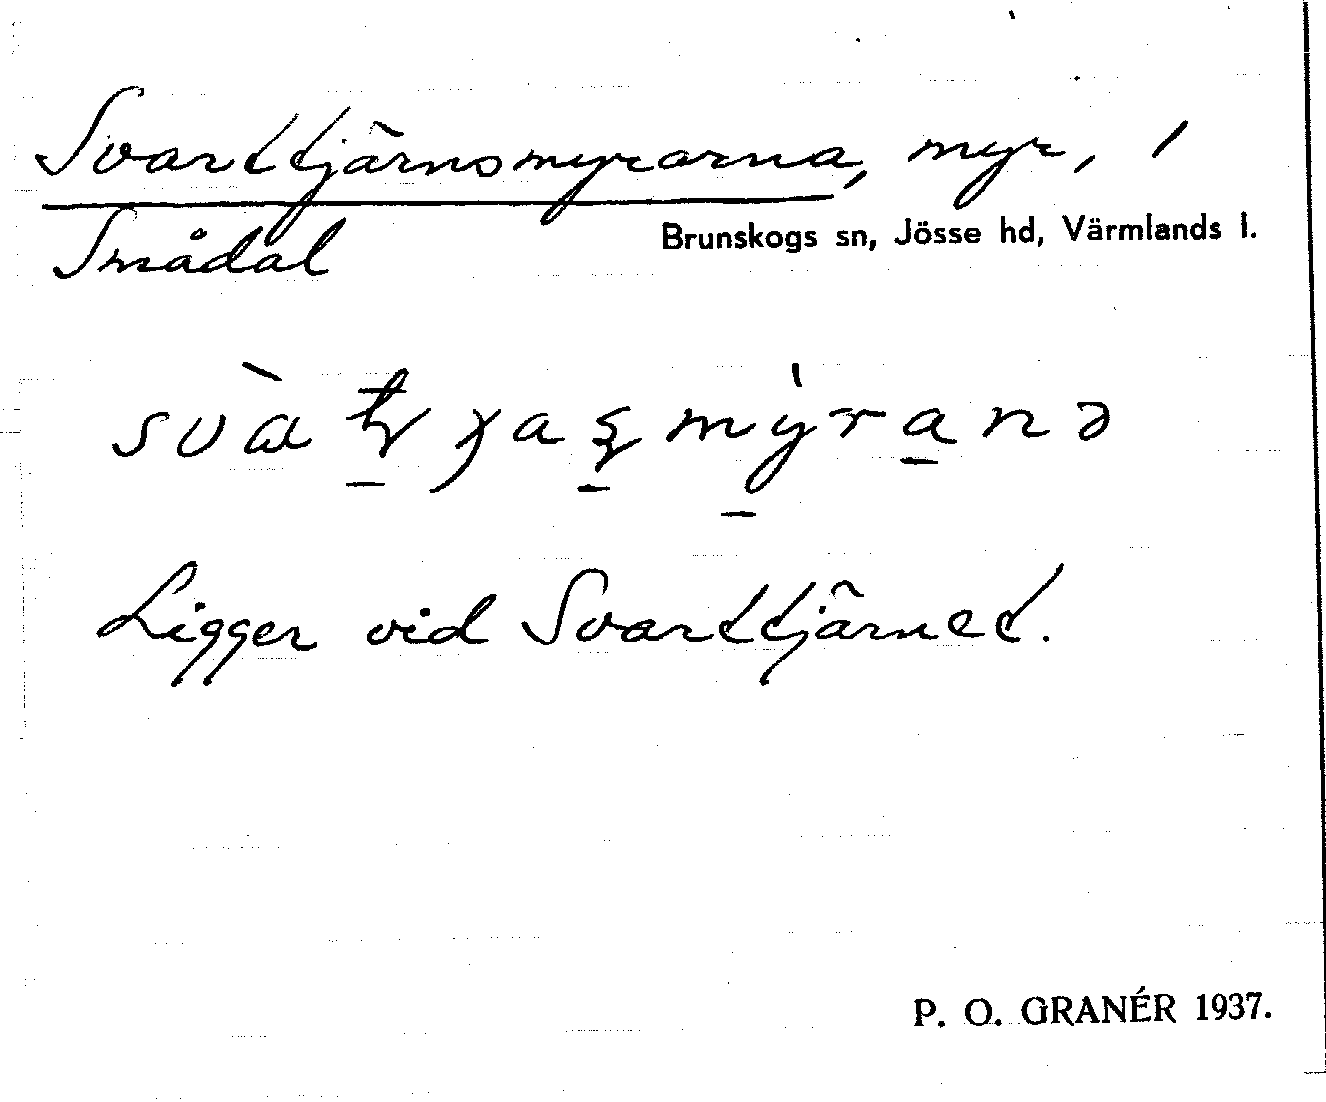 Svarttjärnsmyrarna, myr, i
Smådal
Brunskogs sn, Jösse hd, Värmlands l.
Ligger vid Svarttjärnet.
P. O. GRANÉR 1937.